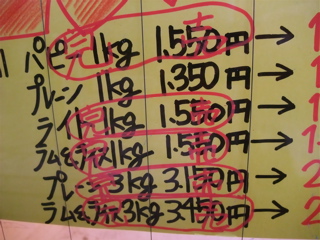 パピー 1kg 1.550円→1
プレーン 1kg 1.350円→1
ライト 1kg 1.550円→1
ラム&ライス1kg 1.550円→1
プレーン3kg 3.150円→2
ラム&ライス3kg 3.450円→2
完売